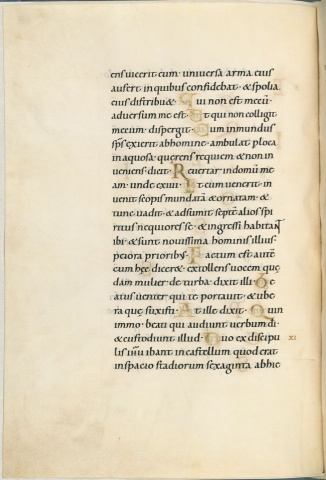 ens uicerit eum · uniuersa arma eius
aufert in quibus confidebat · & spolia
eius distribu& · Qui non est mecū ·
aduersum me est · Et qui non colligit
mecum · dispergit · Cum inmundus
sp̄s exierit ab homine · ambulat p loca
inaquosa · querens requiem & non in
ueniens dicit · Reuertar in domū me
am · unde exiui · Et cum uenerit in
uenit scopis mundatā & ornatam · &
tunc uadit · & adsumit septē alios spi
ritus nequiores se · & ingressi habitant
ibi · & sunt nouissima hominis illius ·
peiora prioribus · Factum est autē
cum hęc dicer& · extollens uocem quę
dam mulier de turba · dixit illi · Be
atus uenter qui te portauit · & ube
ra quę suxisti · At ille dixit · Quin
immo · beati qui audiunt uerbum dī ·
& custodiunt illud · Duo ex discipu
lis ihū ibant in castellum quod erat
in spacio stadiorum sexaginta ab hie
xi